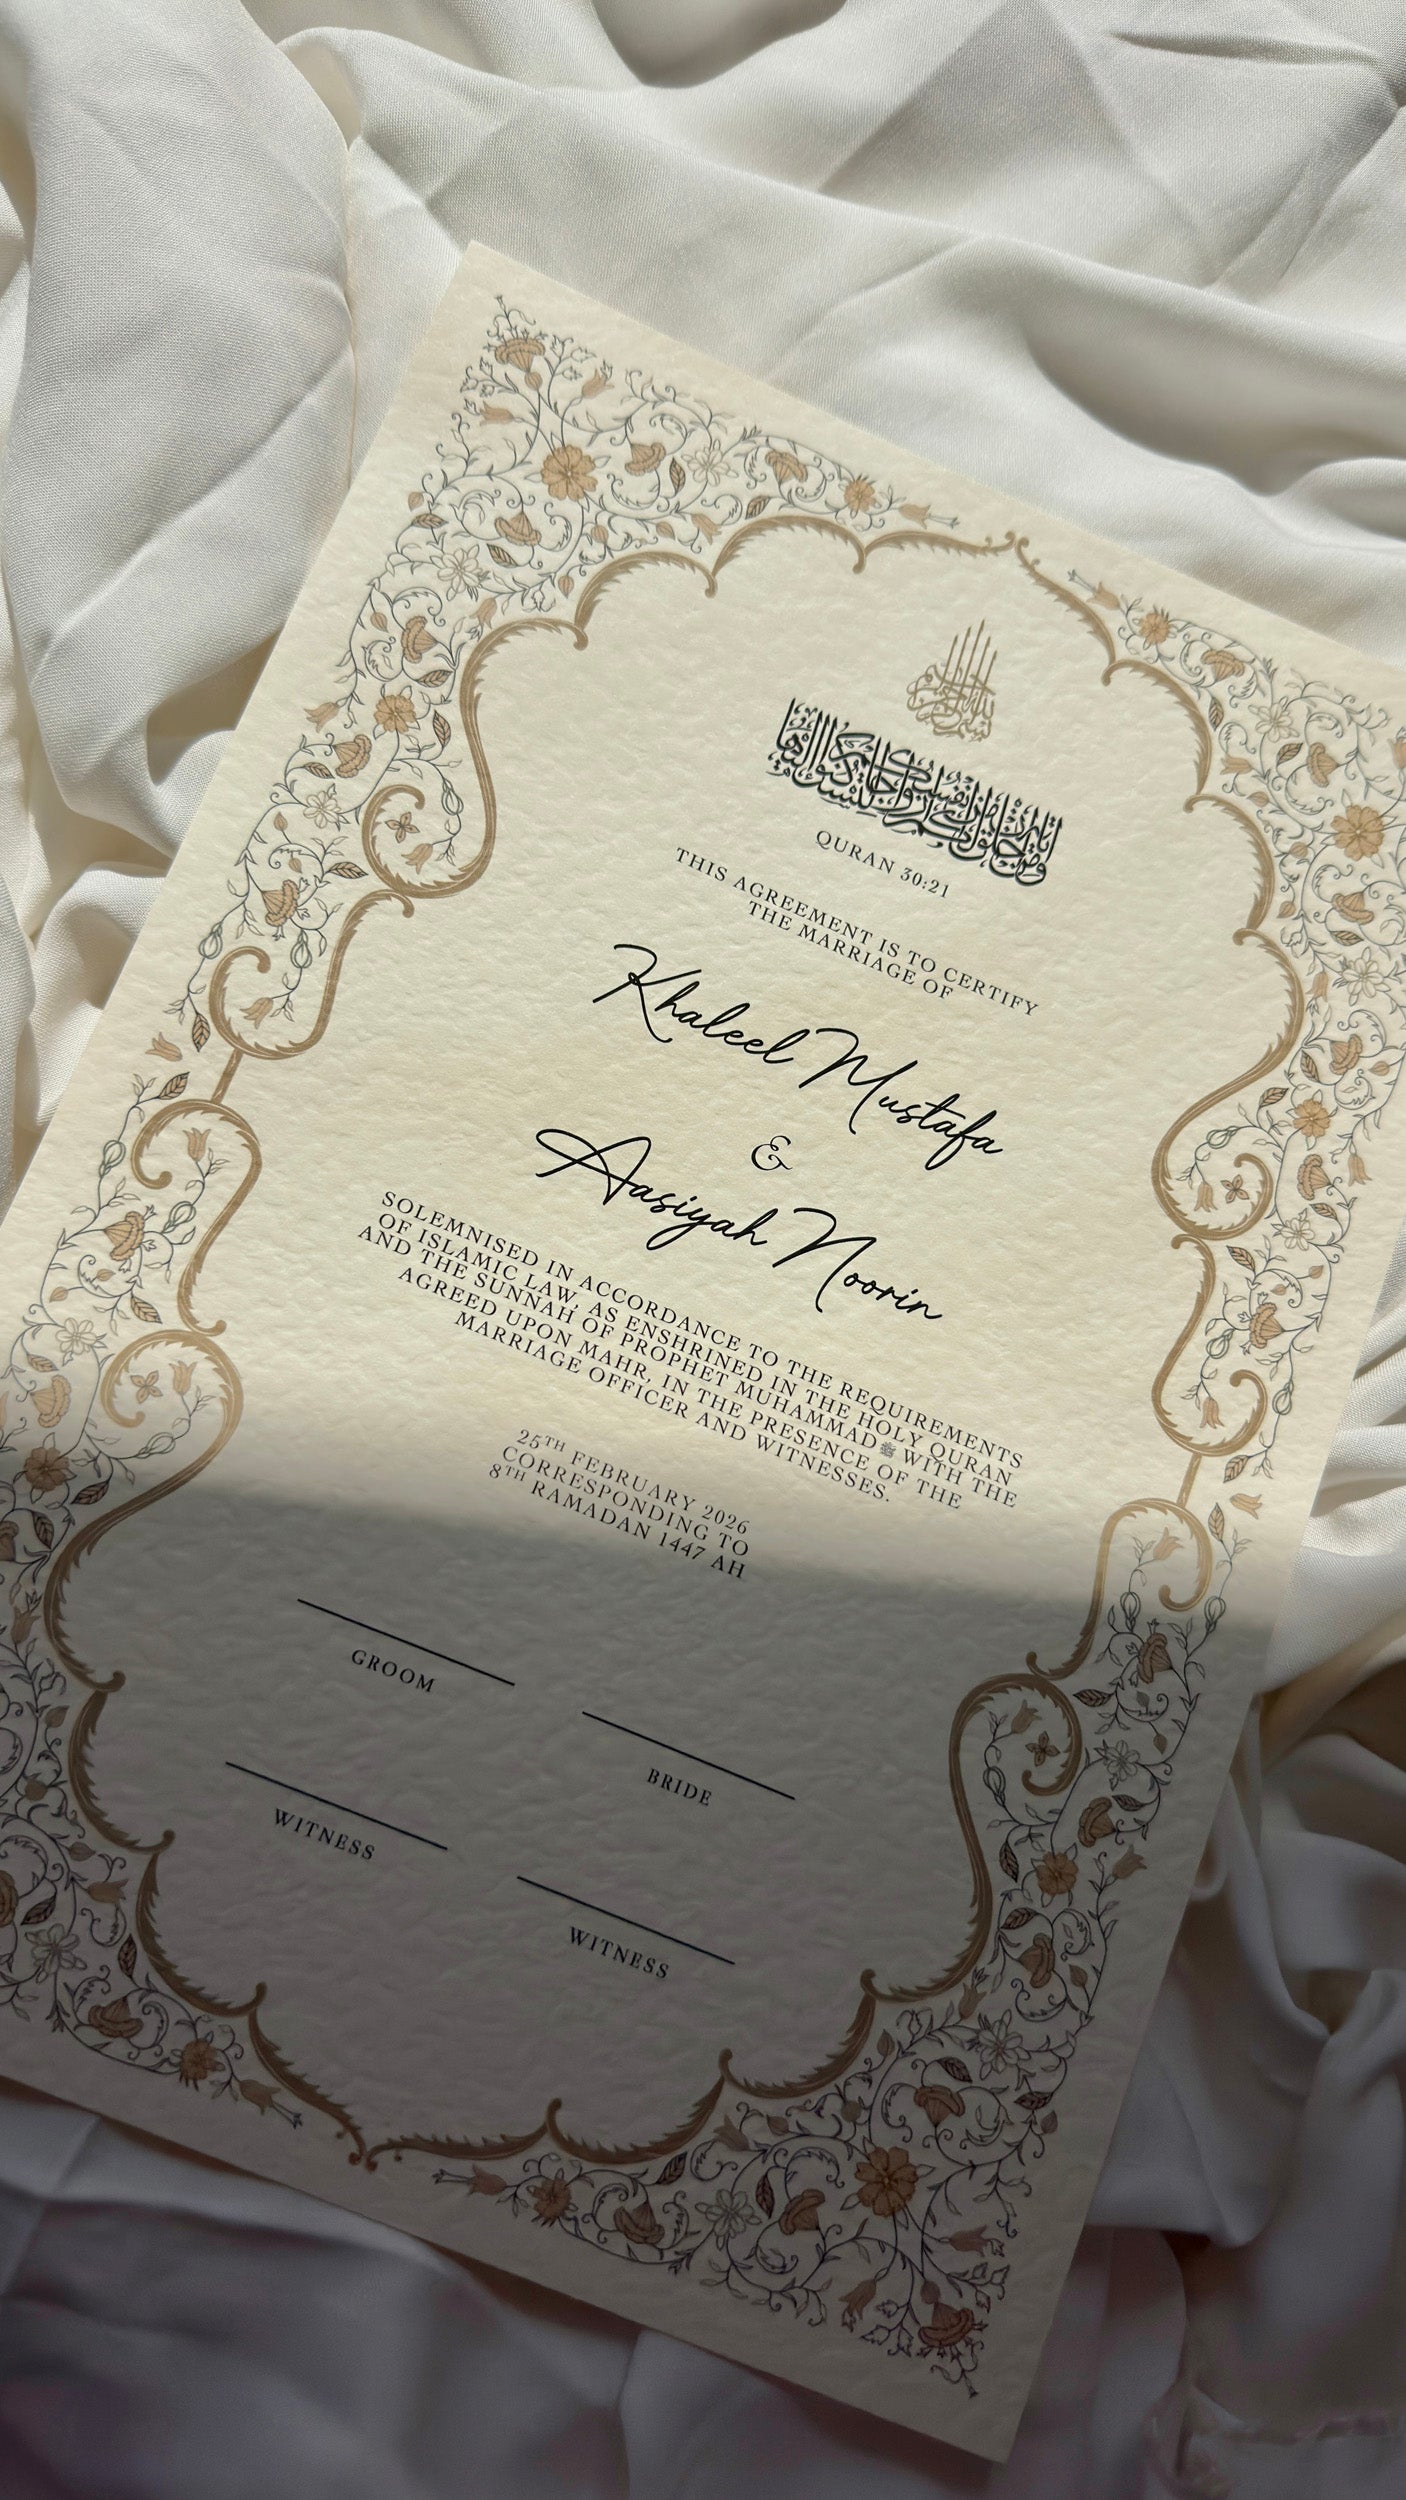 بسم الله الرحمن الرحيم
ومن آياته أن خلق لكم من أنفسكم أزواجا لتسكنوا إليها
QURAN 30:21
THIS AGREEMENT IS TO CERTIFY
THE MARRIAGE OF
Khaleel Mustafa
&
Aasiyah Noorin
SOLEMNISED IN ACCORDANCE TO THE REQUIREMENTS
OF ISLAMIC LAW, AS ENSHRINED IN THE HOLY QURAN
AND THE SUNNAH OF PROPHET MUHAMMAD ﷺ WITH THE
AGREED UPON MAHR, IN THE PRESENCE OF THE
MARRIAGE OFFICER AND WITNESSES.
25TH FEBRUARY 2026
CORRESPONDING TO
8TH RAMADAN 1447 AH
GROOM
BRIDE
WITNESS
WITNESS